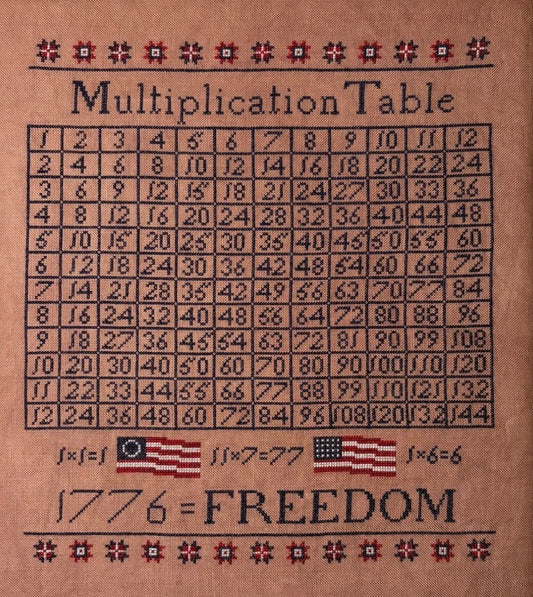 Multiplication Table
1 2 3 4 5 6 7 8 9 10 11 12
2 4 6 8 10 12 14 16 18 20 22 24
3 6 9 12 15 18 21 24 27 30 33 36
4 8 12 16 20 24 28 32 36 40 44 48
5 10 15 20 25 30 35 40 45 50 55 60
6 12 18 24 30 36 42 48 54 60 66 72
7 14 21 28 35 42 49 56 63 70 77 84
8 16 24 32 40 48 56 64 72 80 88 96
9 18 27 36 45 54 63 72 81 90 99 108
10 20 30 40 50 60 70 80 90 100 110 120
11 22 33 44 55 66 77 88 99 110 121 132
12 24 36 48 60 72 84 96 108 120 132 144
1×1=1 11×7=77 1×6=6
1776=FREEDOM